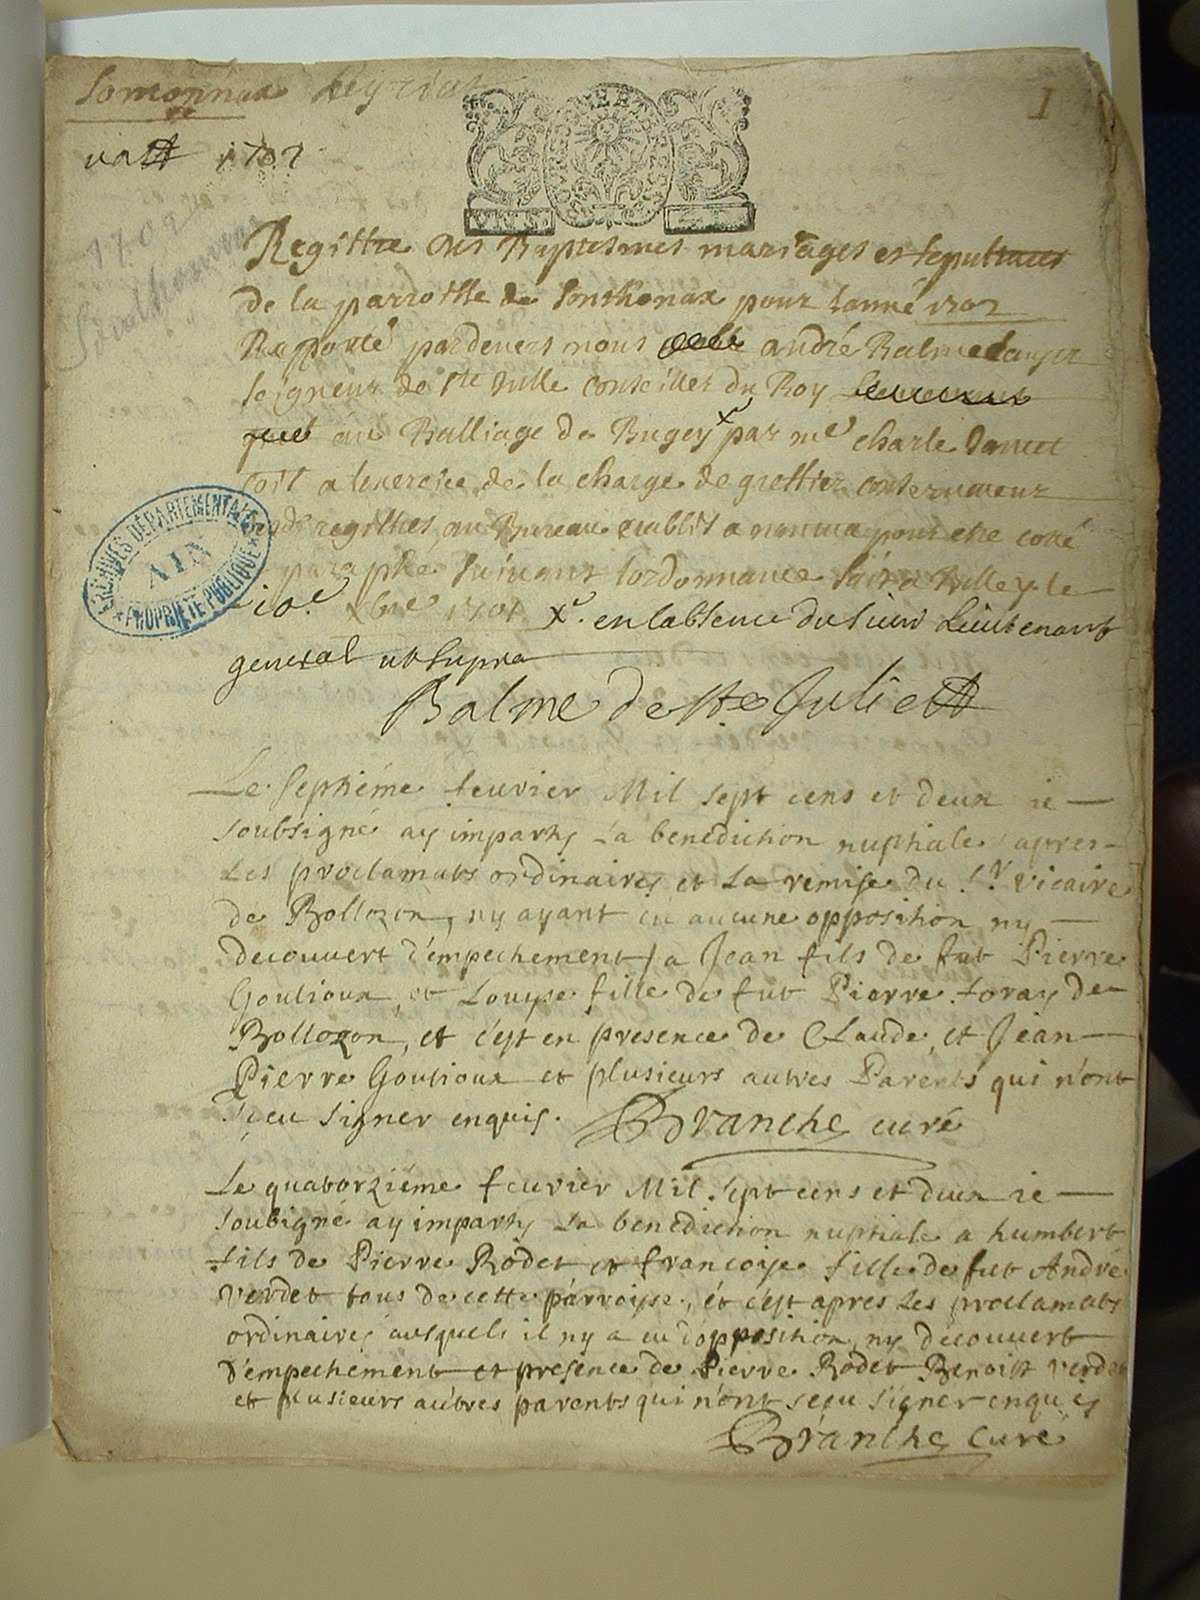 Somonnax Leyriat
1
vatt 1702
1702
Regittre des Baptesmes mariages et sepultures
de la parroisse de Sonthonax pour lanné 1702
Rapporté pardevers nous andré Balme
seigneur de Ste Julle Conseiller du Roy
au Balliage de Bugey X par me charle
a lexercice de la charge de greffier conservateur
des regithes au Bureau establit a nantua pour etre cotté
paraphé suivant lordonnance fait a Belley le
10e Xbre 1701 X. en labsence du sieur Lieutenant
general ut supra
Balme de Ste Julie
ARCHIVES DÉPARTEMENTALES
AIN
PROPRIÉTÉ PUBLIQUE
Le septiéme feuvier Mil sept cens et deux ie
soubsigné ay imparty La benediction nuptiale apres
Les proclamats ordinaires et La remise du Sr. vicaire
de Bollozon, ny ayant eü aucune opposition ny
decouvert d'empechement a Jean fils de fut Pierre
Goulioux et Louyse fille de fut Pierre foray de
Bollozon, et c'est en presence de Claude et Jean
Pierre Goulioux et plusieurs autres Parents qui n'ont
sçeu signer enquis. Branche curé
Le quatorziéme feuvier Mil sept cens et deux ie
soubigné ay imparty La benediction nuptiale a humbert
fils de Pierre Rodet et francoise fille de fut André
verdet tous de cette párroisse, et c'est apres Les proclamats
ordinaires ausquels il ny a eu d'opposition, ny découvert
d'empechement et presence de Pierre Rodet Benoist verdet
et plusieurs autres parents qui n'ont sçeu signer enquis
Branche Curé